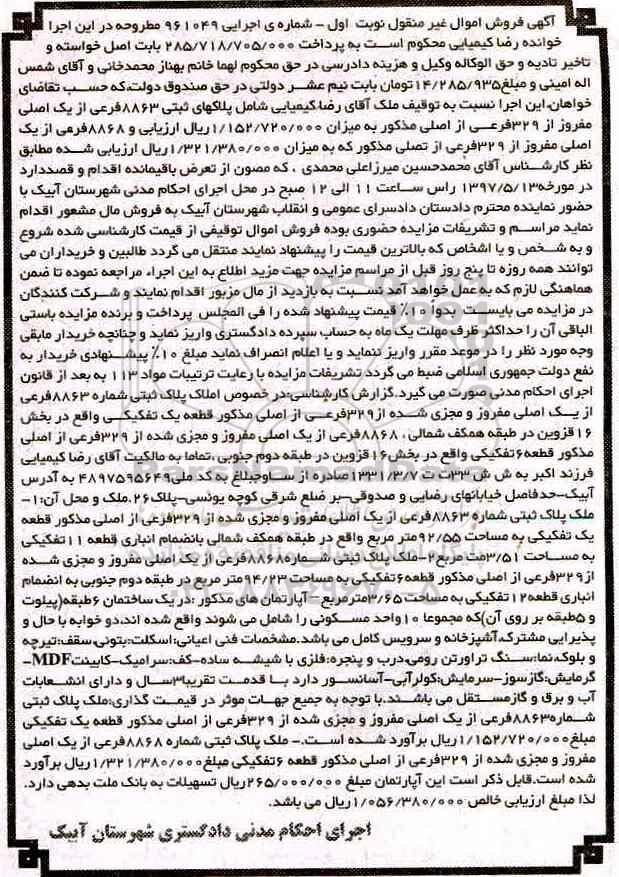 آگهی فروش اموال غیر منقول نوبت اول - شماره ی اجرایی ۹۶۱۰۴۹ مطروحه در این اجرا
خوانده رضا کیمیایی محکوم است به پرداخت ۲۸۵/۷۱۸/۷۰۵/۰۰۰ بابت اصل خواسته و
تاخیر تادیه و حق الوکاله وکیل و هزینه دادرسی در حق محکوم لهما خانم بهناز محمدخانی و آقای شمس
اله امینی و مبلغ۱۴/۲۸۵/۹۳۵تومان بابت نیم عشر دولتی در حق صندوق دولت،که حسب تقاضای
خواهان،این اجرا نسبت به توقیف ملک آقای رضا،کیمیایی شامل پلاکهای ثبتی ۸۸۶۳فرعی از یک اصلی
مفروز از ۳۲۹فرعی از اصلی مذکور به میزان ۱/۱۵۲/۷۲۰/۰۰۰ریال ارزیابی و ۸۸۶۸فرعی از یک
اصلی مفروز از ۳۲۹فرعی از تصلی مذکور که به میزان ۱/۳۲۱/۳۸۰/۰۰۰ریال ارزیابی شده مطابق
نظر کارشناس آقای محمدحسین میرزاعلی محمدی ، که مصون از تعرض باقیمانده اقدام و قصددارد
در مورخه۱۳۹۷/۵/۱۳ راس ساعت ۱۱ الی ۱۲ صبح در محل اجرای احکام مدنی شهرستان آبیک با
حضور نماینده محترم دادستان دادسرای عمومی و انقلاب شهرستان آبیک به فروش مال مشعور اقدام
نماید مراسم و تشریفات مزایده حضوری بوده فروش اموال توقیفی از قیمت کارشناسی شده شروع
و به شخص و یا اشخاص که بالاترین قیمت را پیشنهاد نمایند منتقل می گردد طالبین و خریداران می
توانند همه روزه تا پنج روز قبل از مراسم مزایده جهت مزید اطلاع به این اجراء مراجعه نموده تا ضمن
هماهنگی لازم که به عمل خواهد آمد نسبت به بازدید از مال مزبور اقدام نمایند و شرکت کنندگان
در مزایده می بایست بدوا ۱۰٪ قیمت پیشنهاد شده را فی المجلس پرداخت و برنده مزایده باستی
الباقی آن را حداکثر ظرف مهلت یک ماه به حساب سپرده دادگستری واریز نماید و چنانچه خریدار مابقی
وجه مورد نظر را در موعد مقرر واریز ننماید و یا اعلام انصراف نماید مبلغ ۱۰٪ پیشنهادی خریدار به
نفع دولت جمهوری اسلامی ضبط می گردد تشریفات مزایده با رعایت ترتیبات مواد ۱۱۳ به بعد از قانون
اجرای احکام مدنی صورت می گیرد.گزارش کارشناسی:در خصوص املاک پلاک ثبتی شماره ۸۸۶۳فرعی
از یک اصلی مفروز و مجزی شده از۳۲۹فرعی از اصلی مذکور قطعه یک تفکیکی واقع در بخش
۱۶قزوین در طبقه همکف شمالی ، ۸۸۶۸فرعی از یک اصلی مفروز و مجزی شده از ۳۲۹فرعی از اصلی
مذکور قطعه۶تفکیکی واقع در بخش۱۶قزوین در طبقه دوم جنوبی ،تماما به مالکیت آقای رضا کیمیایی
فرزند اکبر به ش ش۲۳ت ت۱۳۳۱/۳/۷صادره از ساوجبلاغ به کد ملی۴۸۹۷۵۹۵۶۴۹ به آدرس
آبیک-حدفاصل خیابانهای رضایی و صدوقی-بر ضلع شرقی کوچه یونسی-پلاک۲۶.ملک و محل آن:۱-
ملک پلاک ثبتی شماره ۸۸۶۳فرعی از یک اصلی مفروز و مجزی شده از ۳۲۹فرعی از اصلی مذکور قطعه
یک تفکیکی به مساحت ۹۲/۵۵متر مربع واقع در طبقه همکف شمالی بانضمام انباری قطعه ۱۱تفکیکی
به مساحت ۳/۵۱مت مربع۲-ملک پلاک ثبتی شماره۸۸۶۸فرعی از یک اصلی مفروز و مجزی شده
از۳۲۹فرعی از اصلی مذکور قطعه۶تفکیکی به مساحت ۹۴/۲۳متر مربع در طبقه دوم جنوبی به انضمام
انباری قطعه۱۲تفکیکی به مساحت۳/۶۵مترمربع-آپارتمان های مذکور :در یک ساختمان ۶طبقه(پیلوت
و ۵طبقه بر روی آن)که مجموعا ۱۰واحد مسکونی را شامل می شوند واقع شده اند،دو خوابه با حال و
پذیرایی مشترک،آشپزخانه و سرویس کامل می باشد.مشخصات فنی اعیانی:اسکلت:بتونی،سقف:تیرچه
و بلوک،نما:سنگ تراورتن رومی،درب و پنجره:فلزی با شیشه ساده-کف:سرامیک-کابینتMDF-
گرمایش:گازسوز-سرمایش:کولرآبی-آسانسور دارد با قدمت تقریبا۳سال و دارای انشعابات
آب و برق و گازمستقل می باشند.با توجه به جمیع جهات موثر در قیمت گذاری:ملک پلاک ثبتی
شماره۸۸۶۳فرعی از یک اصلی مفروز و مجزی شده از ۳۲۹فرعی از اصلی مذکور قطعه یک تفکیکی
مبلغ۱/۱۵۲/۷۲۰/۰۰۰ریال برآورد شده است.- ملک پلاک ثبتی شماره ۸۸۶۸فرعی از یک اصلی
مفروز و مجزی شده از ۳۲۹فرعی از اصلی مذکور قطعه ۶تفکیکی مبلغ۱/۳۲۱/۳۸۰/۰۰۰ریال برآورد
شده است.قابل ذکر است این آپارتمان مبلغ ۲۶۵/۰۰۰/۰۰۰ریال تسهیلات به بانک ملت بدهی دارد.
لذا مبلغ ارزیابی خالص ۱/۰۵۶/۳۸۰/۰۰۰ریال می باشد.
اجرای احکام مدنی دادگستری شهرستان آبیک